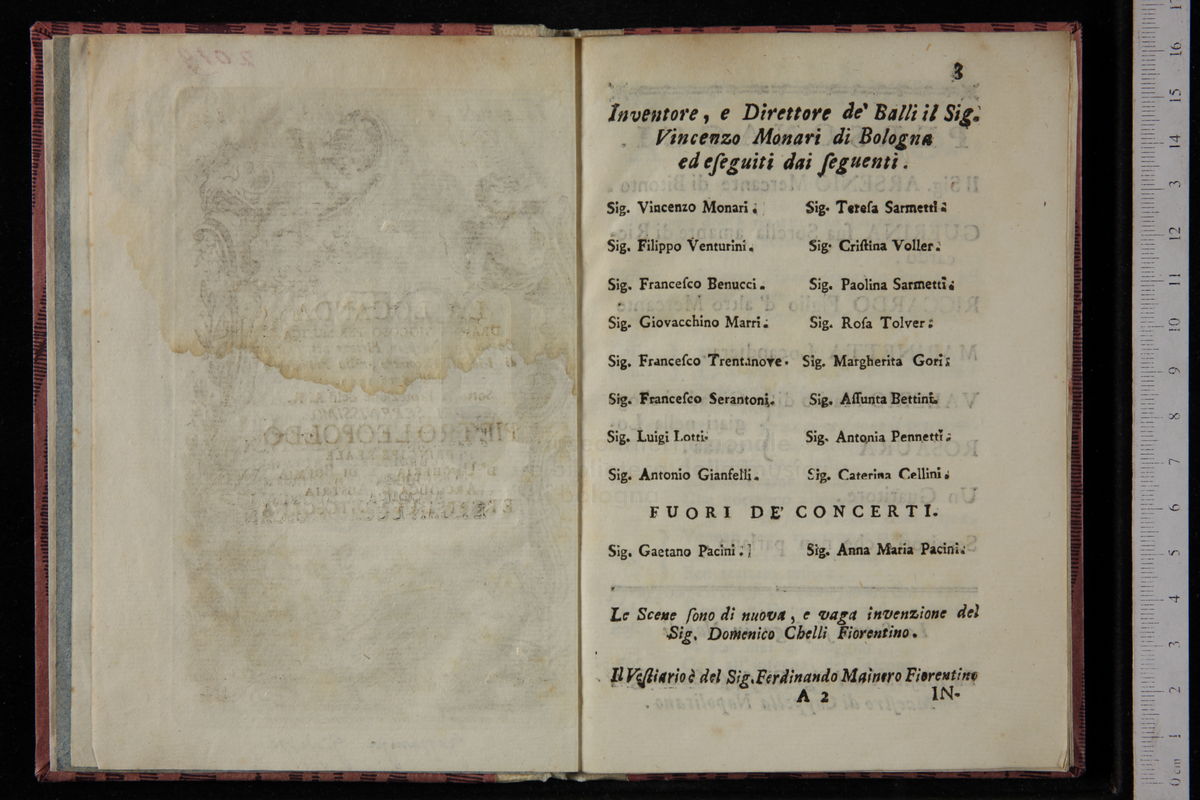 3
Inventore, e Direttore de' Balli il Sig.
Vincenzo Monari di Bologna
ed eſeguiti dai ſeguenti.
Sig. Vincenzo Monari. Sig. Tereſa Sarmetti.
Sig. Filippo Venturini. Sig. Criſtina Voller.
Sig. Franceſco Benucci. Sig. Paolina Sarmetti.
Sig. Giovacchino Marri. Sig. Roſa Tolver.
Sig. Franceſco Trentanove. Sig. Margherita Gori.
Sig. Franceſco Serantoni. Sig. Aſſunta Bettini.
Sig. Luigi Lotti. Sig. Antonia Pennetti.
Sig. Antonio Gianfelli. Sig. Caterina Cellini.
FUORI DE' CONCERTI.
Sig. Gaetano Pacini. Sig. Anna Maria Pacini.
Le Scene ſono di nuova, e vaga invenzione del
Sig. Domenico Chelli Fiorentino.
Il Veſtiario è del Sig. Ferdinando Mainero Fiorentino
A 2 IN-